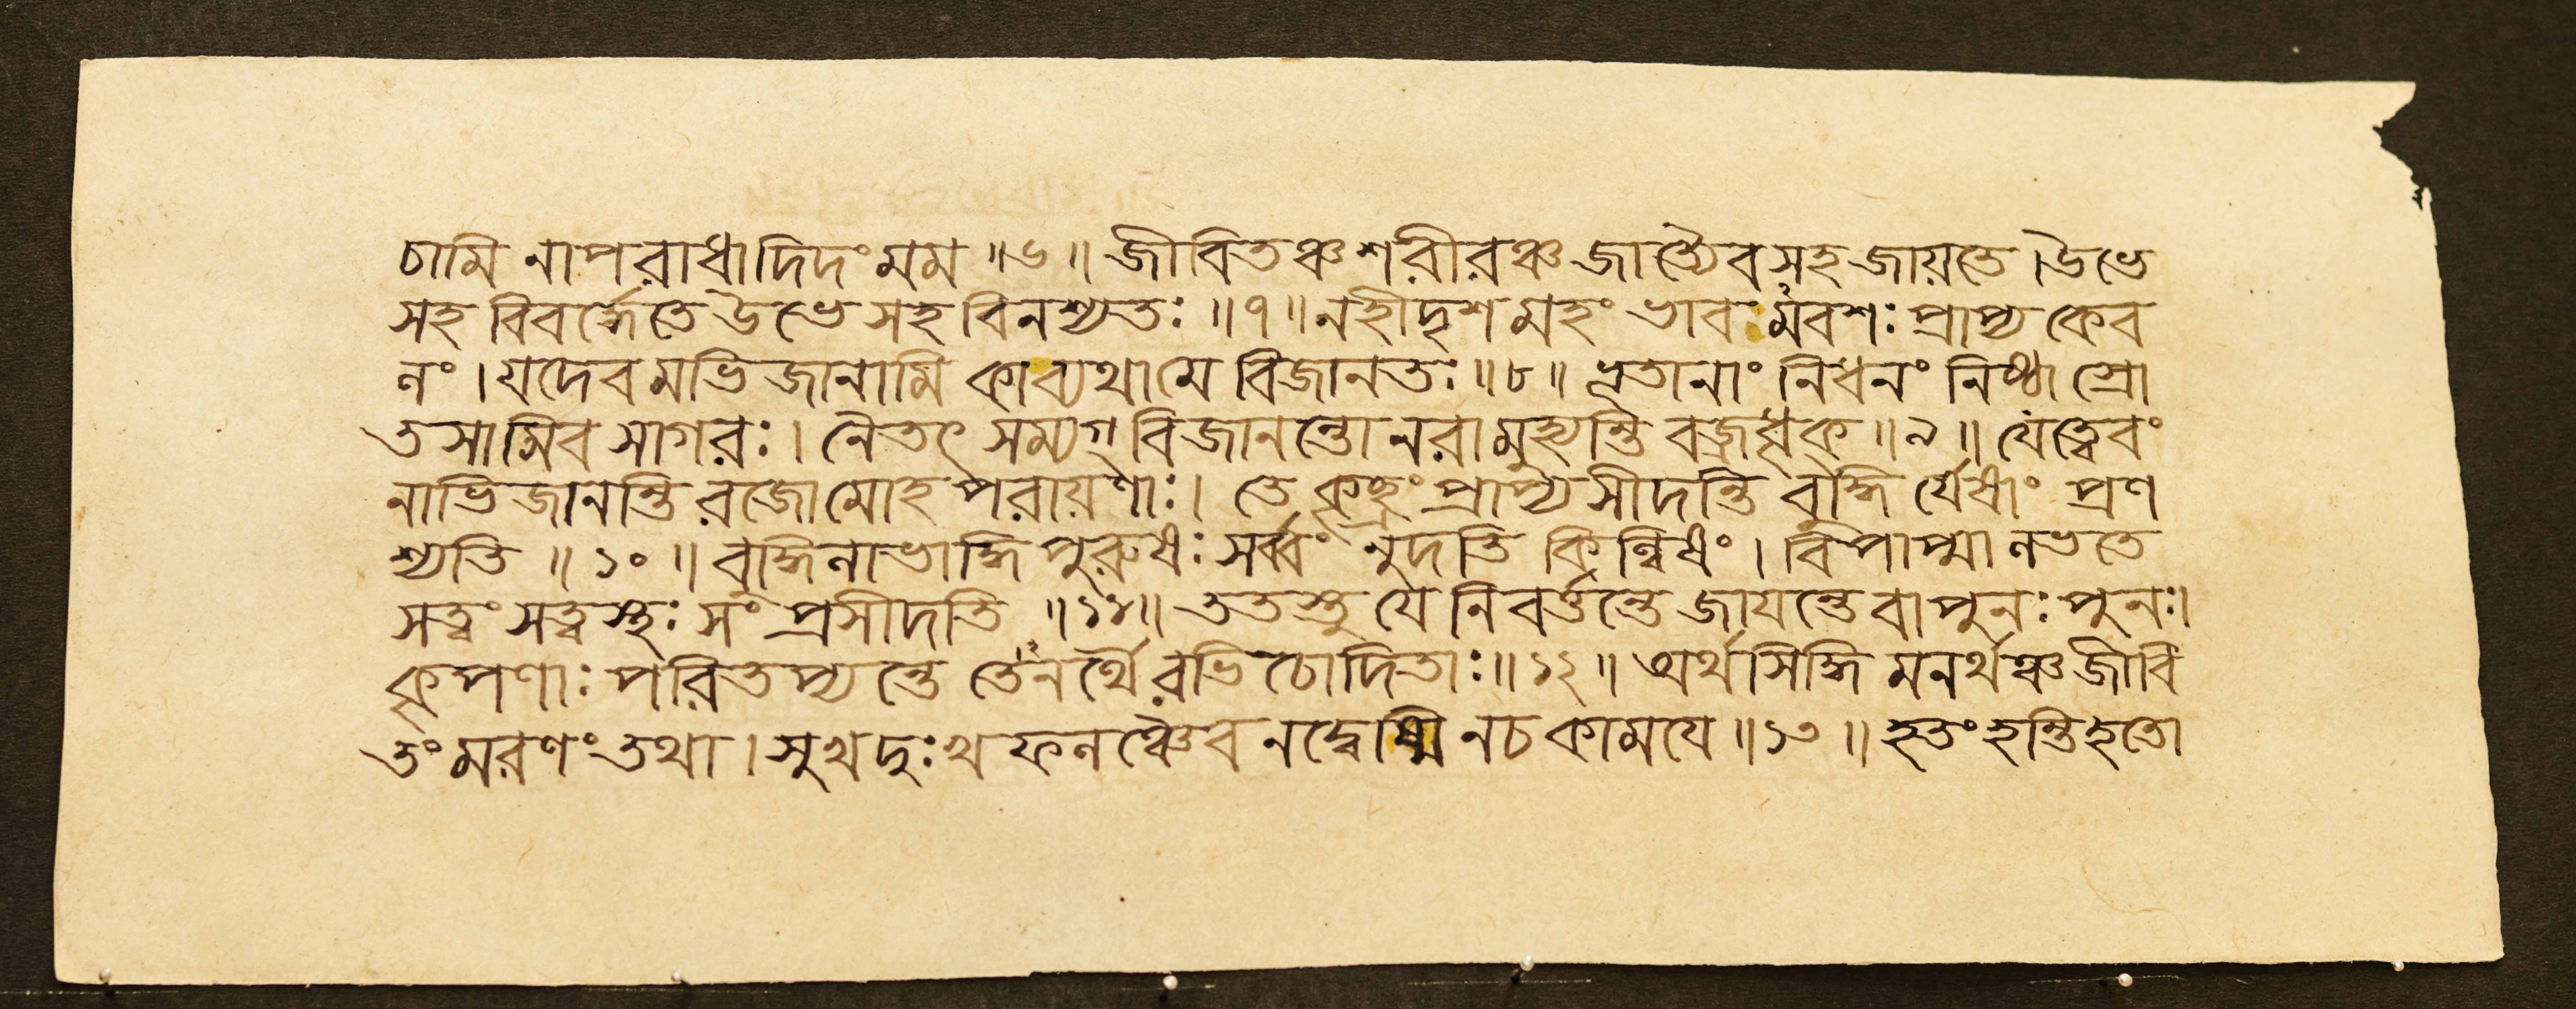 চামি নাপরাধাদিদং মম ॥ ৬ ॥ জীবিতঞ্চ শরীরঞ্চ জাত্যৈব সহ জায়তে । উভে
সহ বিবর্দ্ধেতে উভে সহ বিনশ্যতঃ ॥ ৭ ॥ নহীদৃশমহং ভাবমবশঃ প্রাপ্য কেব
লং । যদেবমভিজানামি কাব্যথা মে বিজানতঃ ॥ ৮ ॥ ভূতানাং নিধনং নিষ্ঠা স্রো
তসামিব সাগরঃ । নৈতৎ সম্যগ্ বিজানন্তো নরা মুহ্যন্তি বজ্রধৃক্ ॥ ৯ ॥ যেত্বেবং
নাভিজানন্তি রজোমোহপরায়ণাঃ । তে কৃচ্ছ্রং প্রাপ্য সীদন্তি বুদ্ধির্যেষাং প্রণ
শ্যতি ॥ ১০ ॥ বুদ্ধিলাভাদ্ধি পুরুষঃ সর্ব্বং নুদতি কিল্বিষং । বিপাপ্মা লভতে
সত্ত্বং সত্ত্বস্থঃ সংপ্রসীদতি ॥ ১১ ॥ ততস্তু যে নিবর্ত্তন্তে জায়ন্তে বা পুনঃ পুনঃ ।
কৃপণাঃ পরিতপ্যন্তে তেনর্থৈরভিচোদিতাঃ ॥ ১২ ॥ অর্থসিদ্ধিমনর্থঞ্চ জীবি
তং মরণং তথা । সুখদুঃখফলঞ্চৈব নদ্বেষ্মি নচ কাময়ে ॥ ১৩ ॥ হতং হন্তি হতো